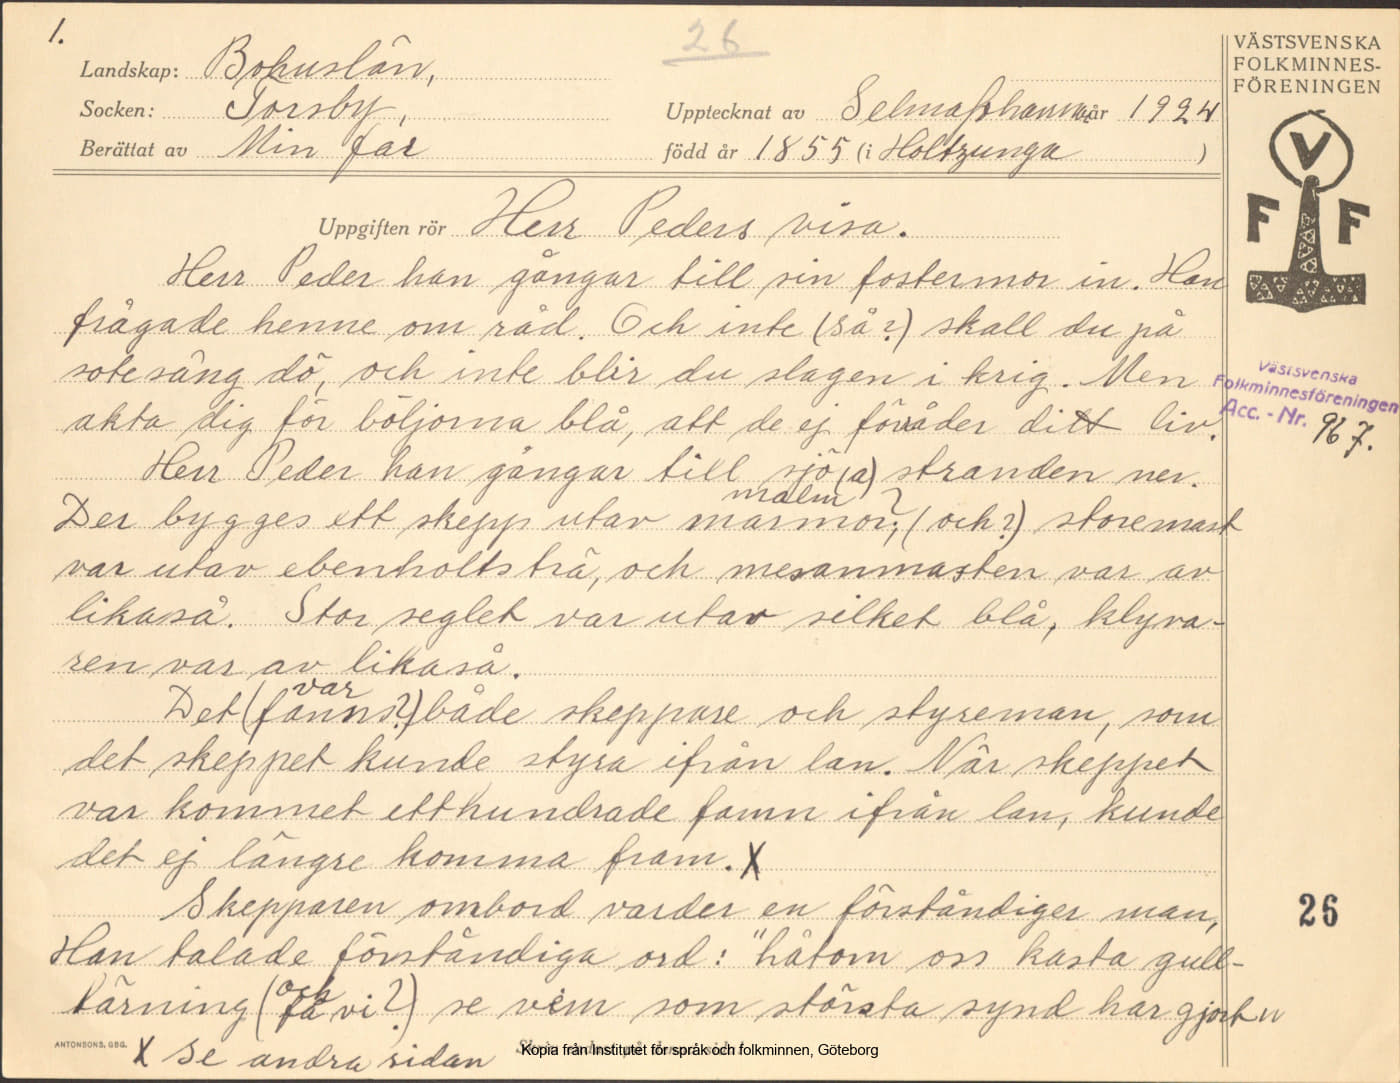 1.
26
Landskap: Bohuslän,
Socken: Torsby,
Upptecknat av Selma Johansson år 1924
Berättat av Min far
född år 1855 (i Holtzunga )
VÄSTSVENSKA
FOLKMINNES-
FÖRENINGEN
V
F F
Uppgiften rör Herr Peders visa.
Herr Peder han gångar till sin fostermor in. Han
frågade henne om råd. Och inte (så?) skall du på
sotesäng dö, och inte blir du slagen i krig. Men
akta dig för böljorna blå, att de ej förråder ditt liv.
Herr Peder han gångar till sjö(a) stranden ner.
malm ?
Der bygges ett skepp utav marmor; (och?) storemast
var utav ebenholtsträ, och mesanmasten var av
likaså. Stor seglet var utav silket blå, klyva-
ren var av likaså.
var
Det (fanns?) både skeppare och styreman, som
det skeppet kunde styra ifrån lan. När skeppet
var kommet etthundrade famn ifrån lan, kunde
det ej längre komma fram. X
Skepparen ombord varder en förståndiger man,
Han talade förståndiga ord: "håtom oss kasta gull-
och
tärning (få vi?) se vem som största synd har gjort
X Se andra sidan
Västsvenska
Folkminnesföreningen
Acc. - Nr. 967.
26
ANTONSONS, GBG.
Kopia från Institutet för språk och folkminnen, Göteborg